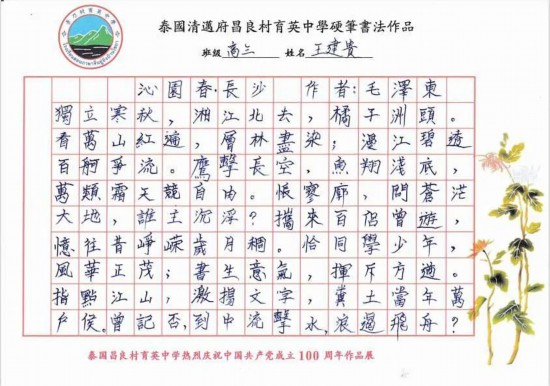 泰國清邁府昌良村育英中學硬筆書法作品
班級 高三 姓名 王建贵
沁園春·長沙 作者:毛澤東
獨立寒秋,湘江北去,橘子洲頭。
看萬山紅遍,層林盡染;漫江碧透
百舸爭流。鷹擊長空,魚翔淺底,
萬類霜天競自由。悵寥廓,問蒼茫
大地,誰主沉浮?攜來百侶曾遊,
憶往昔崢嶸歲月稠。恰同學少年,
風華正茂;書生意氣,揮斥方遒。
指點江山,激揚文字,糞土當年萬
戶侯。曾記否,到中流擊水,浪遏飛舟?
泰国昌良村育英中学热烈庆祝中国共产党成立100周年作品展